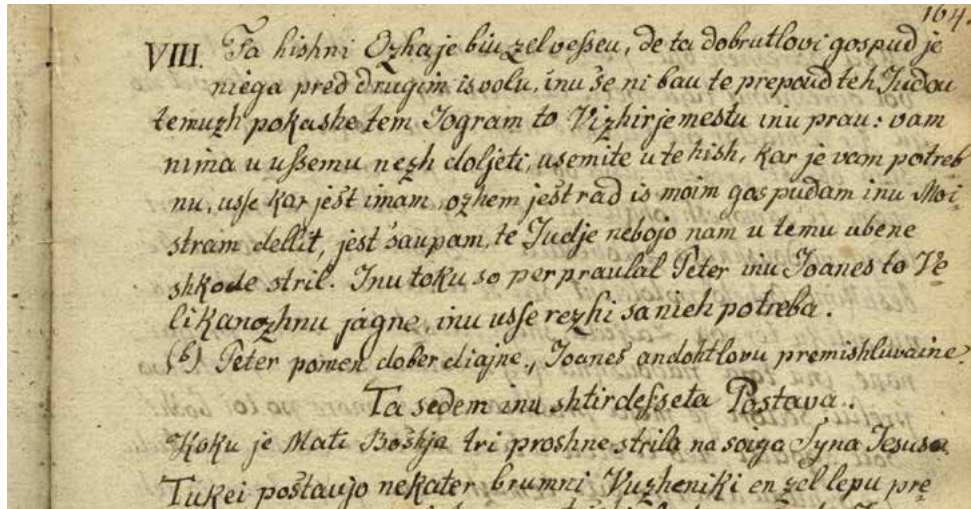 164
VIII. Ta hishni Ozha je biu zel vesseu, de ta dobrutlovi gospud je
niega pred drugim isvolu, inu se ni bau te prepoud teh Judou
temuzh pokashe tem Jogram to Vizhirje mestu inu prau: vam
nima u ussemu nezh doljeti, usemite u te hish, kar je vam potreb
nu, usse kar jest imam, ozhem jest rad is moim gospudam inu Moi-
stram dellit, jest saupam, te Judje nebojo nam u temu ubene
shkode stril. Inu toku so perpraulal Peter inu Joanes to Ve
likanozhnu jagne, inu usse rezhi sa nieh potreba.
(b) Peter pomen dober diajne, Joanes andohtlovu premishluvaine.
Ta sedem inu shtirdesseta Postava.
Koku je Mati Boshja tri proshne strila na soiga Syna Jesusa.
Tukei postaujo nekater brumni Vuzheniki en zel lepu pre